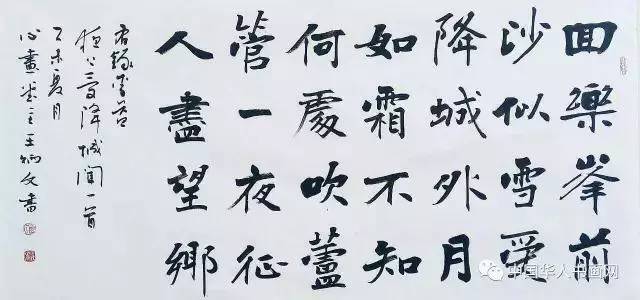 回樂峯前
沙似雪受
降城外月
如霜不知
何處吹蘆
管一夜征
人盡望鄉
右錄李益
夜上受降城聞一首
未夏月
心畫堂主王炳文書
中国华人书画网